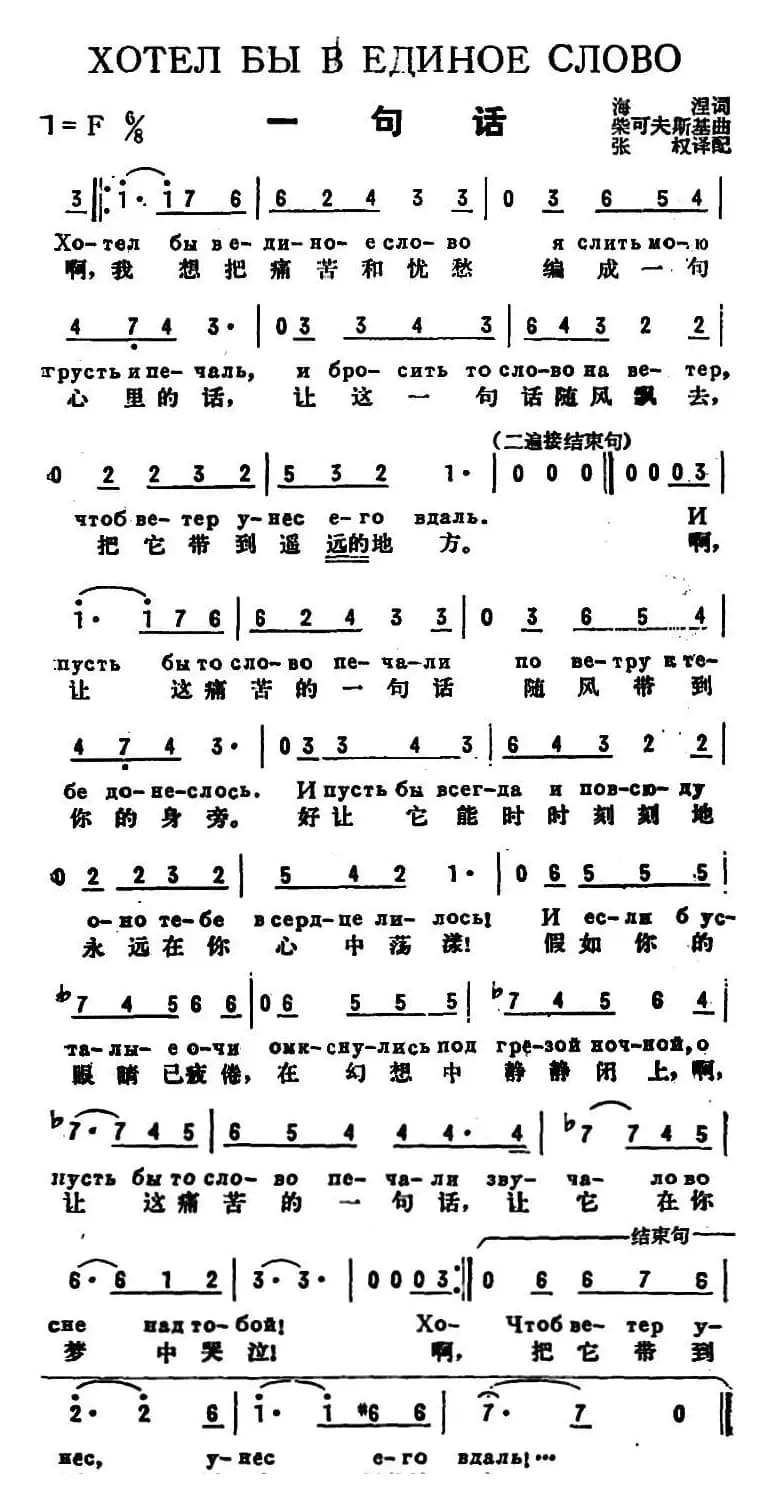 ХОТЕЛ БЫ В ЕДИНОЕ СЛОВО
1=F 6/8 一句话
海涅词
柴可夫斯基曲
张权译配
3 1· 1 7 6 6 2 4 3 3 0 3 6 5 4
Хо-тел бы в е-ди-но-е сло-во я слить мо-ю
啊,我想把痛苦和忧愁 编成一句
4 7 4 3· 0 3 3 4 3 6 4 3 2 2
грусть и пе-чаль, и бро-сить то сло-во на ве-тер,
心里的话, 让这一句话随风飘去,
(二遍接结束句)
0 2 2 3 2 5 3 2 1· 0 0 0 0 0 0 3
чтоб ве-тер у-нёс е-го вдаль. И
把它带到遥远的地方。 啊,
1· 1 7 6 6 2 4 3 3 0 3 6 5 4
пусть бы то сло-во пе-ча-ли по ве-тру к те-
让这痛苦的一句话 随风带到
4 7 4 3· 0 3 3 4 3 6 4 3 2 2
бе до-не-слось. И пусть бы всег-да и пов-сю-ду
你的身旁。 好让它能时时刻刻地
0 2 2 3 2 5 4 2 1· 0 6 5 5 5
о-но те-бе в серд-це ли-лось! И если б ус-
永远在你心中荡漾! 假如你的
♭7 4 5 6 6 6 0 6 5 5 5 ♭7 4 5 6 4
та-лы-е о-чи сну-лись под грёзой ноч-ной, о
眼睛已疲倦,在幻想中静静闭上,啊,
♭7· 7 4 5 6 5 4 4 4· 4 ♭7 7 4 5
пусть бы то сло-во пе-ча-ли зву-ча-ло во
让这痛苦的一句话,让它在你
结束句
6· 6 1 2 3· 3· 0 0 0 3 0 6 6 7 6
сне над то-бой! Хо- Чтоб ве-тер у-
梦中哭泣! 啊, 把它带到
2· 2 6 1· 1 #6 6 7· 7 0
нёс, у-нёс е-го вдаль!···